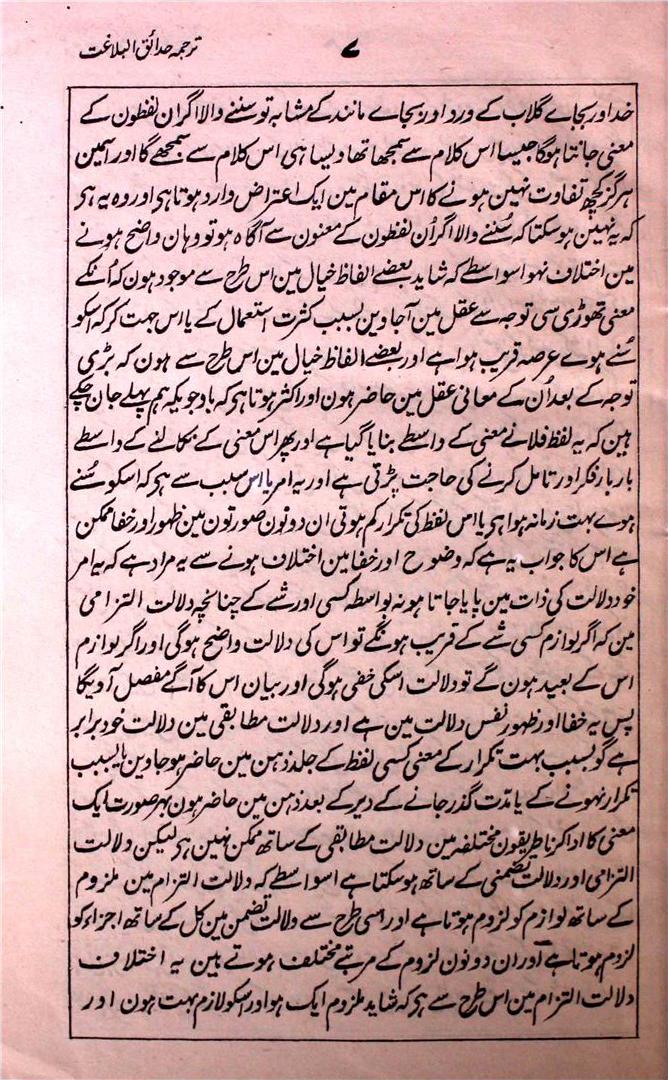 ترجمہ حدائق البلاغت
۷
خد اور بجاے گلاب کے ورد اور بجاے مانند کے مشابہ تو سننے والا اگر ان لفظون کے
معنی جانتا ہوگا جیسا اس کلام سے سمجھا تھا ویسا ہی اس کلام سے سمجھے گا اور اسمین
ہرگز کچھ تفاوت نہین ہونے کا اس مقام مین ایک اعتراض وارد ہوتا ہی اور وہ یہ ہی
کہ یہ نہین ہوسکتا کہ سُننے والا اگر اُن لفظون کے معنون سے آگاہ ہو تو وہان واضح ہونے
مین اختلاف نہو اسواسطے کہ شاید بعضے الفاظ خیال مین اس طرح سے موجود ہون کہ اُنکے
معنی تھوڑی سی توجہ سے عقل مین آجاوین بسبب کثرت استعمال کے یا اس جہت کر کہ اسکو
سُنے ہوے عرصہ قریب ہوا ہے اور بعضے الفاظ خیال مین اس طرح سے ہون کہ بڑی
توجہ کے بعد اُن کے معانی عقل مین حاضر ہون اور اکثر ہوتا ہی کہ باوجودیکہ ہم پہلے جان چکے
ہین کہ یہ لفظ فلانے معنی کے واسطے بنایا گیا ہے اور پھر اس معنی کے نکالنے کے واسطے
بار بار فکر اور تامل کرنے کی حاجت پڑتی ہے اور یہ امر یا اس سبب سے ہی کہ اسکو سُنے
ہوے بہت زمانہ ہوا ہی یا اس لفظ کی تکرار کم ہوتی ان دونون صورتون مین ظہور اور خفا ممکن
ہے اس کا جواب یہ ہے کہ وضوح اور خفا مین اختلاف ہونے سے یہ مراد ہے کہ یہ امر
خود دلالت کی ذات مین پایا جاتا ہو نہ بواسطہ کسی اور شے کے چنانچہ دلالت التزامی
مین کہ اگر لوازم کسی شے کے قریب ہونگے تو اس کی دلالت واضح ہوگی اور اگر لوازم
اس کے بعید ہون گے تو دلالت اسکی خفی ہوگی اور بیان اس کا آگے مفصل آویگا
پس یہ خفا اور ظہور نفس دلالت مین ہے اور دلالت مطابقی مین دلالت خود برابر
ہے گو بسبب بہت تکرار کے معنی کسی لفظ کے جلد ذہن مین حاضر ہو جاوین یا بسبب
تکرار نہونے کے یا مدت گذر جانے کے دیر کے بعد ذہن مین حاضر ہون بہر صورت ایک
معنی کا ادا کرنا طریقون مختلفہ مین دلالت مطابقی کے ساتھ ممکن نہین ہی لیکن دلالت
التزامی اور دلالت تضمنی کے ساتھ ہوسکتا ہے اسواسطے کہ دلالت التزام مین ملزوم
کے ساتھ لوازم کو لزوم ہوتا ہے اور اسی طرح سے دلالت تضمن مین کل کے ساتھ اجزاء کو
لزوم ہوتا ہے اور ان دونون لزوم کے مرتبے مختلف ہوتے ہین یہ اختلاف
دلالت التزام مین اس طرح سے ہی کہ شاید ملزوم ایک ہو اور اسکو لازم بہت ہون اور